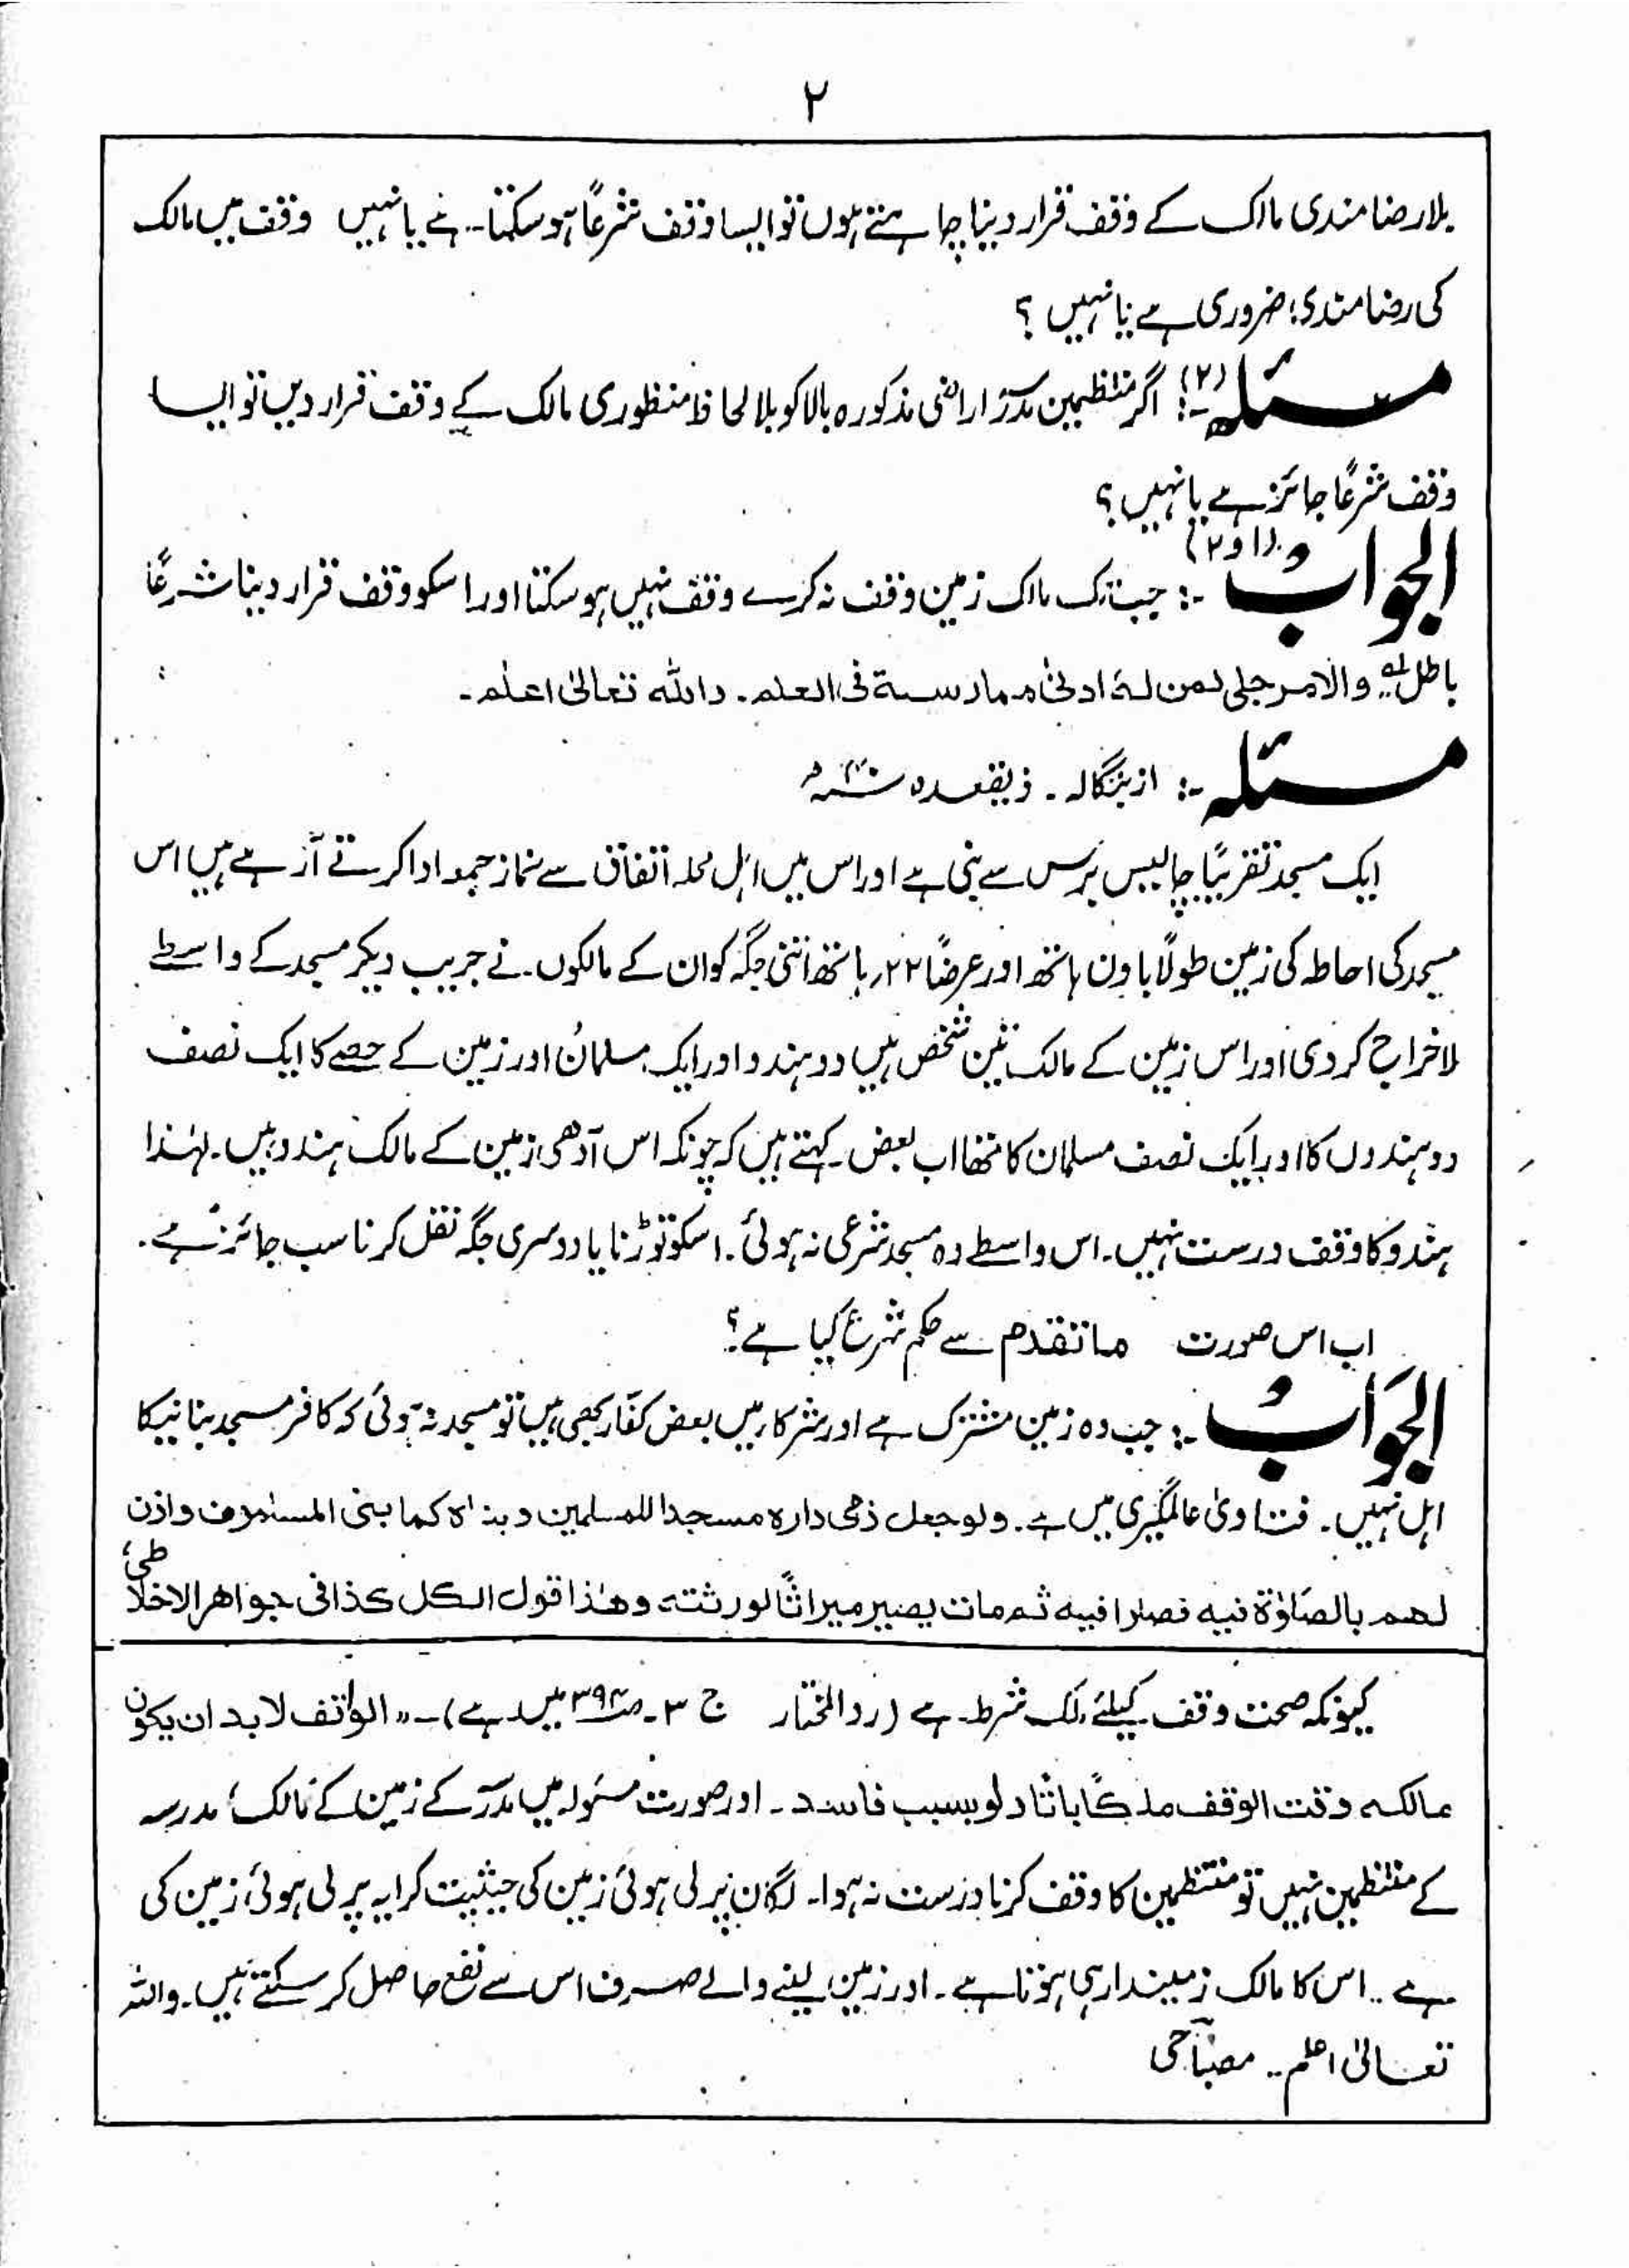 ۲
بلا رضا مندی مالک کے وقف قرار دینا چاہتے ہوں تو ایسا وقف شرعاً ہو سکتا ہے یا نہیں وقف میں مالک
کی رضا مندی ضروری ہے یا نہیں ؟
مسئلہ (۲) :- اگر منتظمین مدرسہ اراضی مذکورہ بالا کو بلا لحاظ منظوری مالک کے وقف قرار دیں تو ایسا
وقف شرعاً جائز ہے یا نہیں ؟
الجواب (۱ و ۲) :- جب تک مالک زمین وقف نہ کرے وقف نہیں ہو سکتا اور اسکو وقف قرار دینا شرعاً
باطل لہ والامر جلی لمن لہ ادنیٰ ممارسۃ فی العلم ۔ واللہ تعالیٰ اعلم ۔
مسئلہ :- از بنگالہ ۔ ذیقعدہ
ایک مسجد تقریباً چالیس برس سے بنی ہے اور اس میں اہل محلہ اتفاق سے نماز جمعہ ادا کرتے آرہے ہیں اس
مسجد کی احاطہ کی زمین طولاً باون ہاتھ اور عرضاً ۲۲؍ ہاتھ اتنی جگہ کو ان کے مالکوں نے جریب دیکر مسجد کے واسطے
لاخراج کر دی اور اس زمین کے مالک تین شخص ہیں دو ہندو اور ایک مسلمان اور زمین کے حصے کا ایک نصف
دو ہندوں کا اور ایک نصف مسلمان کا تھا اب بعض کہتے ہیں کہ چونکہ اس آدھی زمین کے مالک ہندو ہیں ۔ لہٰذا
ہندو کا وقف درست نہیں ۔ اس واسطے وہ مسجد شرعی نہ ہوئی ۔ اسکو توڑنا یا دوسری جگہ نقل کرنا سب جائز ہے ۔
اب اس صورت ماتقدم سے حکم شرع کیا ہے ؟
الجوابُ :- جب وہ زمین مشترک ہے اور شرکار میں بعض کفار بھی ہیں تو مسجد نہ ہوئی کہ کافر مسجد بنانیکا
اہل نہیں ۔ فتاویٰ عالمگیری میں ہے ۔ ولو جعل ذمی دارہ مسجدا للمسلمین وبناہ کما بنی المسلمون واذن
لھم بالصلوٰۃ فیہ فصلوا فیہ ثم مات یصیر میراثاً لورثتہ وھٰذا قول الکل کذا فی جواھر الاخلاطی ؛
کیونکہ صحت وقف کیلئے ملک شرط ہے (ردالمختار ج ۳ ۔ ص ۳۹۴ میں ہے) ۔ ،، الواقف لا بد ان یکون
مالکہ وقت الوقف ملکاً باتًا ولو بسبب فاسد ۔ اور صورت مسئولہ میں مدرسہ کے زمین کے مالک ؛ مدرسہ
کے منتظمین نہیں تو منتظمین کا وقف کرنا درست نہ ہوا ۔ لگان پر لی ہوئی زمین کی حیثیت کرایہ پر لی ہوئی زمین کی
ہے ۔ اس کا مالک زمیندار ہی ہوتا ہے ۔ اور زمین لینے والے صرف اس سے نفع حاصل کر سکتے ہیں ۔ واللہ
تعالیٰ اعلم ۔ مصباحی